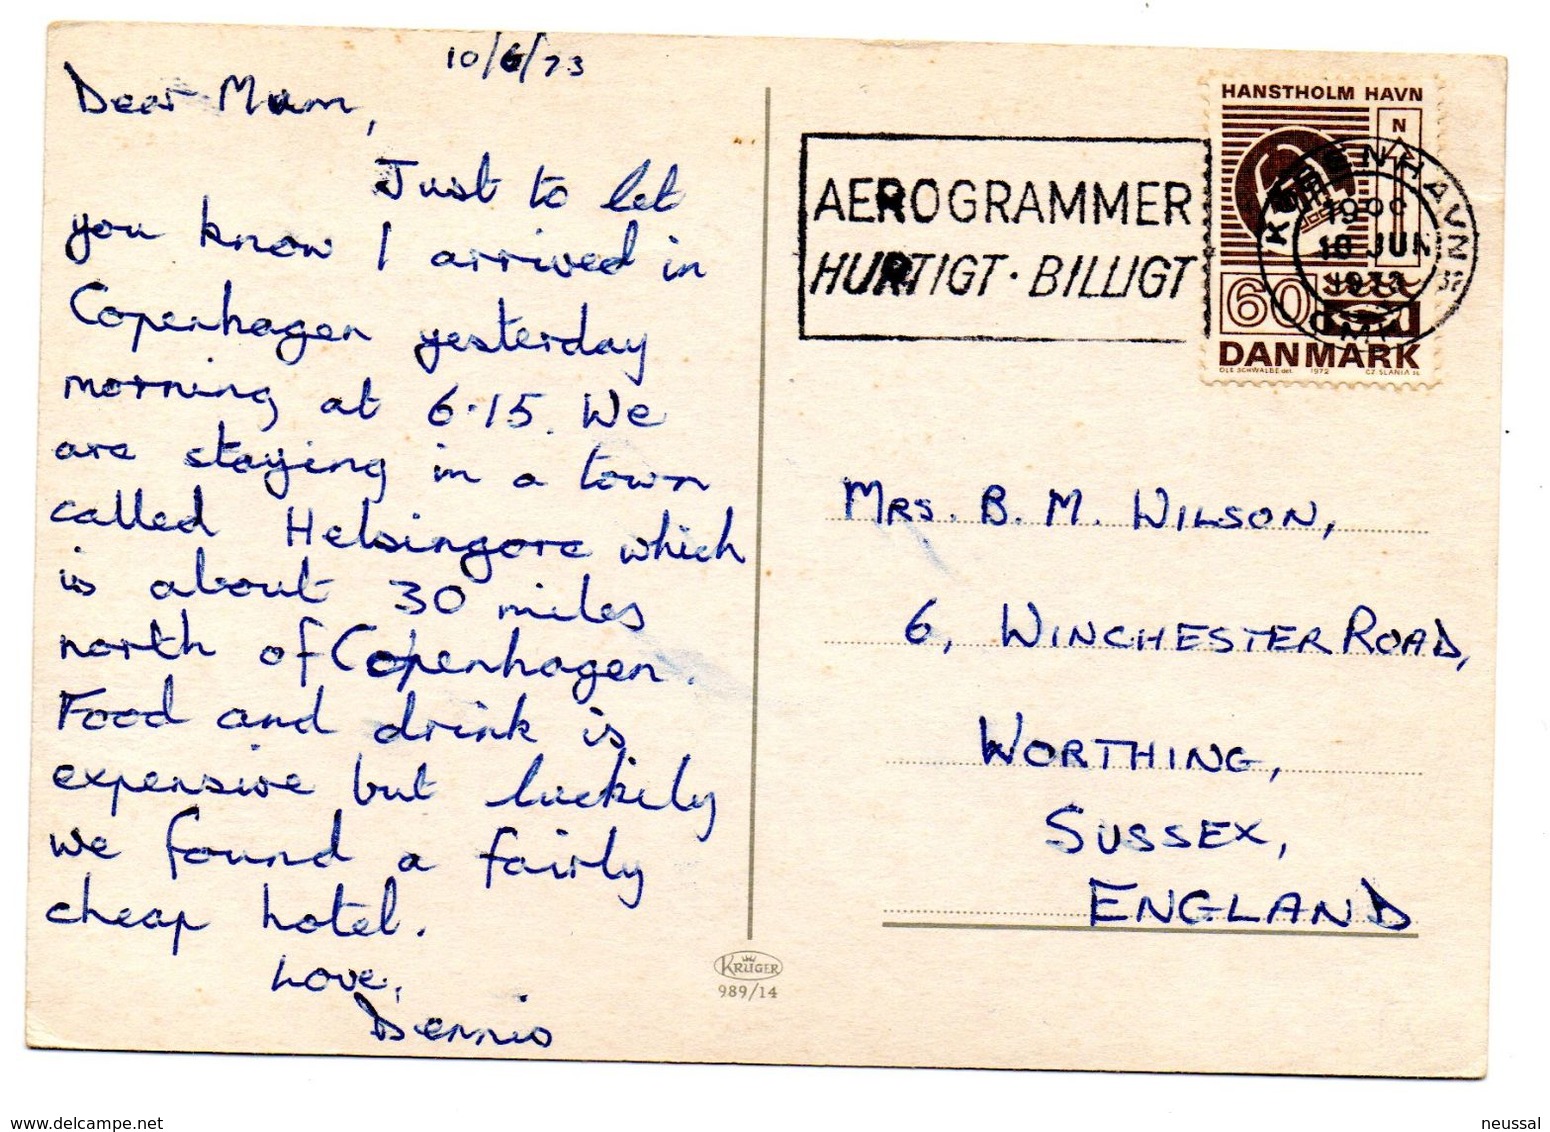 10/6/73
Dear Mum,
Just to let
you know I arrived in
Copenhagen yesterday
morning at 6.15. We
are staying in a town
called Helsingore which
is about 30 miles
north of Copenhagen.
Food and drink is
expensive but luckily
we found a fairly
cheap hotel.
Love,
Dennis
AEROGRAMMER
HURTIGT · BILLIGT
HANSTHOLM HAVN
N
KØBENHAVN
10 JUN
1973
OMK
60
DANMARK
OLE SCHWALBE del. 1972 CZ. SLANIA sc
MRS. B. M. WILSON,
6, WINCHESTER ROAD,
WORTHING,
SUSSEX,
ENGLAND
KRÜGER
989/14
www.delcampe.net
neussal